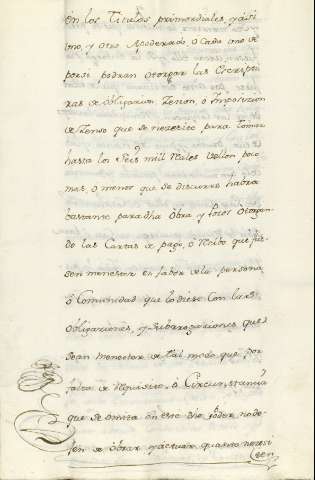 en los Titulos primordiales, y asi
uno, y otro Apoderado, o Cada uno de
porsi podran otorgar las Escriptu
ras de obligacion Zenon, o Imposizion
de Zenso que se nezesite para tomar
hasta los Seis mil Reales vellon poco
mas, o menos que se discurre habra
bastante para dha obra y fotos otorgan
do las Cartas de pago, o Rezibo que fue
sen menester a fabor de la persona
o Comunidad que lo diere con las
obligaziones, y subrrogaziones que
sean menester de tal modo que por
falta de Requisito o Circunstanzia
que se omita en este dho Poder no de
jen de obrar y actuar quanto nezesi
ten